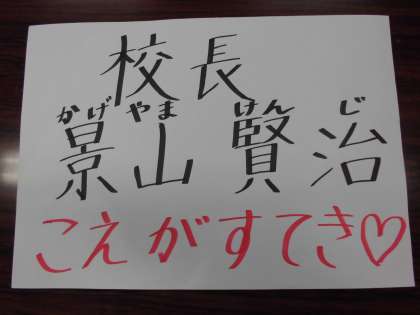 校長
かげ やま けん じ
景山 賢治
こえがすてき♡